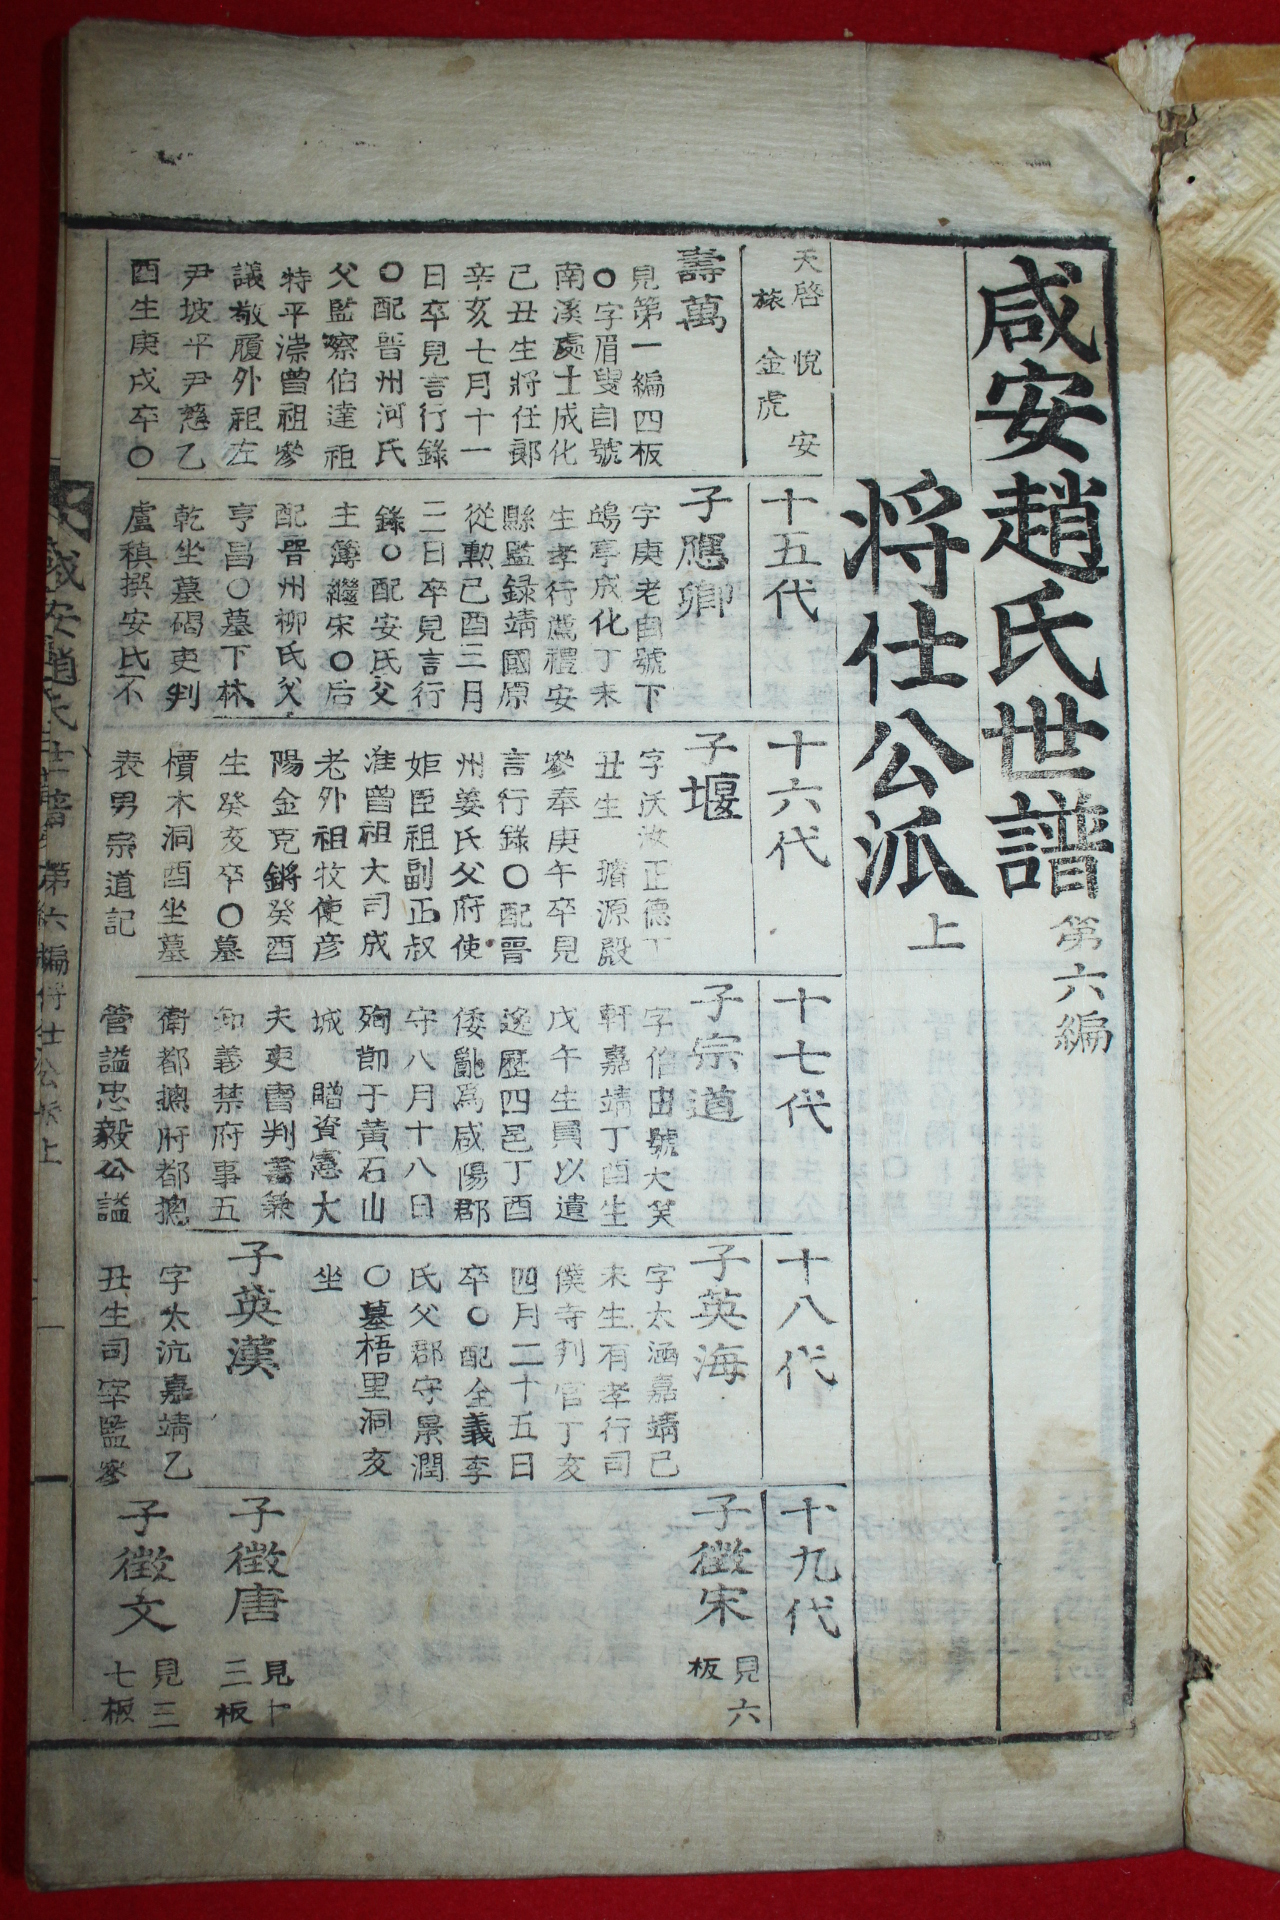 咸安趙氏世譜 第六編
將仕公派 上
天啓 悅 安
旅 金虎
壽萬
見第一編四板
〇字眉叟自號
南溪處士成化
己丑生將仕郞
辛亥七月十一
日卒見言行錄
〇配晋州河氏
父監察伯達祖
特平漴曾祖參
議敬履外祖左
尹坡平尹慈乙
酉生庚戌卒〇
十五代
子應卿
字庚老自號下
鴣亭成化丁未
生孝行薦禮安
縣監録靖國原
從勳己酉三月
二日卒見言行
錄〇配安氏父
主簿繼宋〇后
配晋州柳氏父
亨昌〇墓下林
乾坐墓碣吏判
盧稹撰安氏不
十六代
子堰
字沃汝正德丁
丑生 璿源殿
參奉庚午卒見
言行錄〇配晋
州姜氏父府使
姖臣祖副正叔
淮曾祖大司成
老外祖牧使彦
陽金克鏘癸酉
生癸亥卒〇墓
檟木洞酉坐墓
表男宗道記
十七代
子宗道
字伯由號大笑
軒嘉靖丁酉生
戊午生員以遺
逸歷四邑丁酉
倭亂爲咸陽郡
守八月十八日
殉節于黃石山
城 贈資憲大
夫吏曹判書兼
知義禁府事五
衛都摠府都摠
管謚忠毅公謚
十八代
子英海
字太涵嘉靖己
未生有孝行司
僕寺判官丁亥
四月二十五日
卒〇配全義李
氏父郡守景潤
〇墓梧里洞亥
坐
子英漢
字太沆嘉靖乙
丑生司宰監參
十九代
子徵宋 見六
板
子徵唐 見十
三板
子徵文 見三
七板
咸安趙氏世譜 第六編將仕公派上